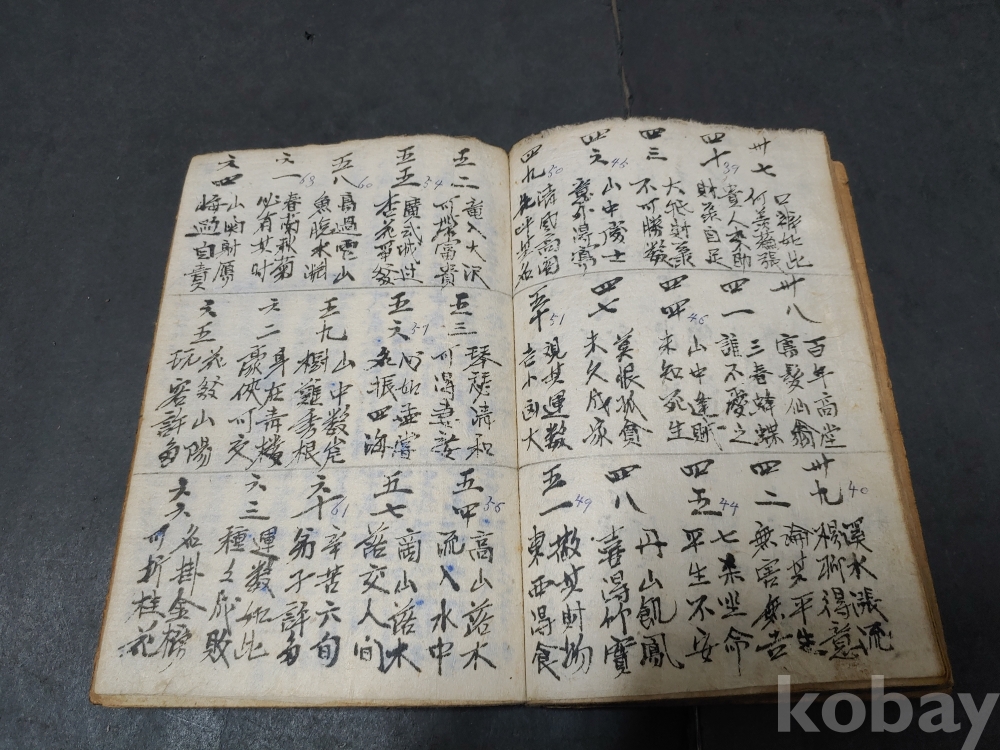 卅七
口禍如此
四十
39
貴人多助
財祿自足
四三
不可勝數
四六
45
山中處士
意外得
四九
50
卅八
百年高堂
鶴髮仙翁
四一
三春蜂蝶
誰不愛之
四四
46
山中逢賊
未知死生
四七
莫恨孤貧
未久成家
五十
51
觀其運數
吉小凶大
卅九
40
溪水漲流
楊柳得意
四二
論其平生
無害無吉
四五
44
七殺坐命
平生不安
四八
丹山飢鳳
喜得竹實
五一
49
散其財物
東西得食
五二
龍入大沢
可期富貴
五五
54
杏花爭發
五八
60
高過雲山
魚隱水淵
六一
63
春蘭秋菊
必有其時
六四
悔過自責
五三
琴瑟清和
可得妻妾
五六
57
心如孟嘗
名振四海
五九
山中數宅
樹難秀根
六二
身在靑樓
豪俠可交
六五
花發山陽
玩客許多
五四
56
高山落木
流入水中
五七
落交人間
六十
61
辛苦六旬
弟子許多
六三
運數如此
種々成敗
六六
名掛金榜
可折桂花
kobay